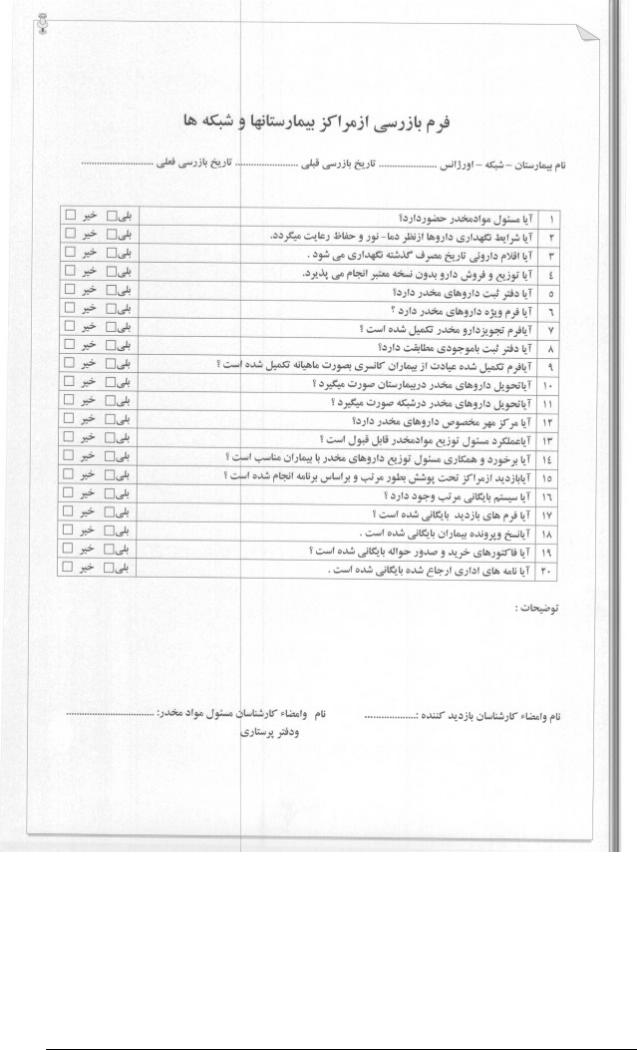 فرم بازرسی ازمراکز بیمارستانها و شبکه ها
نام بیمارستان – شبکه – اورژانس .................... تاریخ بازرسی قبلی ...................... تاریخ بازرسی فعلی .........................
۱ آیا مسئول موادمخدر حضوردارد؟ بلی□ خیر □
۲ آیا شرایط نگهداری داروها ازنظر دما- نور و حفاظ رعایت میگردد. بلی□ خیر □
۳ آیا اقلام داروئی تاریخ مصرف گذشته نگهداری می شود . بلی□ خیر □
٤ آیا توزیع و فروش دارو بدون نسخه معتبر انجام می پذیرد. بلی□ خیر □
٥ آیا دفتر ثبت داروهای مخدر دارد؟ بلی□ خیر □
٦ آیا فرم ویژه داروهای مخدر دارد ؟ بلی□ خیر □
۷ آیافرم تجویزدارو مخدر تکمیل شده است ؟ بلی□ خیر □
۸ آیا دفتر ثبت باموجودی مطابقت دارد؟ بلی□ خیر □
۹ آیافرم تکمیل شده عیادت از بیماران کانسری بصورت ماهیانه تکمیل شده است ؟ بلی□ خیر □
۱۰ آیاتحویل داروهای مخدر دربیمارستان صورت میگیرد ؟ بلی□ خیر □
۱۱ آیاتحویل داروهای مخدر درشبکه صورت میگیرد ؟ بلی□ خیر □
۱۲ آیا مرکز مهر مخصوص داروهای مخدر دارد؟ بلی□ خیر □
۱۳ آیاعملکرد مسئول توزیع موادمخدر قابل قبول است ؟ بلی□ خیر □
۱٤ آیا برخورد و همکاری مسئول توزیع داروهای مخدر با بیماران مناسب است ؟ بلی□ خیر □
۱٥ آیابازدید ازمراکز تحت پوشش بطور مرتب و براساس برنامه انجام شده است ؟ بلی□ خیر □
۱٦ آیا سیستم بایگانی مرتب وجود دارد ؟ بلی□ خیر □
۱۷ آیا فرم های بازدید بایگانی شده است ؟ بلی□ خیر □
۱۸ آیانسخ وپرونده بیماران بایگانی شده است . بلی□ خیر □
۱۹ آیا فاکتورهای خرید و صدور حواله بایگانی شده است ؟ بلی□ خیر □
۲۰ آیا نامه های اداری ارجاع شده بایگانی شده است . بلی□ خیر □
توضیحات :
نام وامضاء کارشناسان بازدید کننده :.................. نام وامضاء کارشناسان مسئول مواد مخدر: ..............................
ودفتر پرستاری